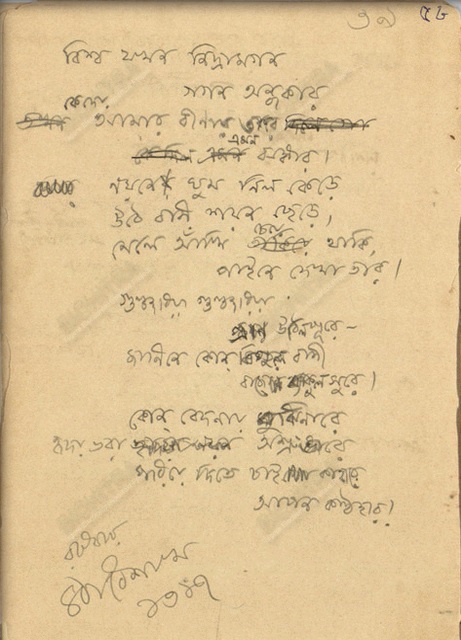 ৩৯ ৫৮
বিশ্ব যখন নিদ্রামগন
গগন অন্ধকার
কে দেয় আমার বীণার তারে
এমন ঝঙ্কার।
নয়নে ঘুম নিল কেড়ে
উঠে বসি শয়ন ছেড়ে,
মেলে আঁখি চেয়ে থাকি,
পাইনে দেখা তার।
গুঞ্জরিয়া গুঞ্জরিয়া
প্রাণ উঠিল পূরে—
জানিনে কোন্ বিপুল বাণী
বাজে ব্যাকুল সুরে।
কোন্ বেদনায় বুঝিনারে
হৃদয় ভরা অশ্রুভারে
পরিয়ে দিতে চাই কাহারে
আপন কণ্ঠহার।
বৈশাখ
১৩১৭